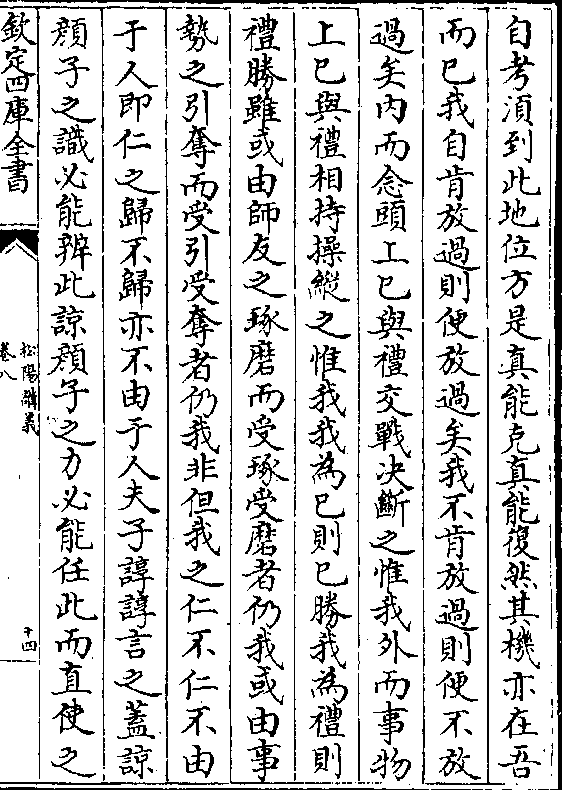 自考湏到此地位方是真能克真能復然其機亦在吾
而已我自肯放過則便放過矣我不肯放過則便不放
過矣内而念頭上已與禮交戰決斷之惟我外而事物
上已與禮相持操縱之惟我我為已則已勝我為禮則
禮勝雖或由師友之琢磨而受琢受磨者仍我或由事
勢之引奪而受引受奪者仍我非但我之仁不仁不由
于人即仁之歸不歸亦不由于人夫子諄諄言之蓋諒
顔子之識必能辨此諒顔子之力必能任此而直使之
欽定四庫全書
松陽講義
卷八
十四